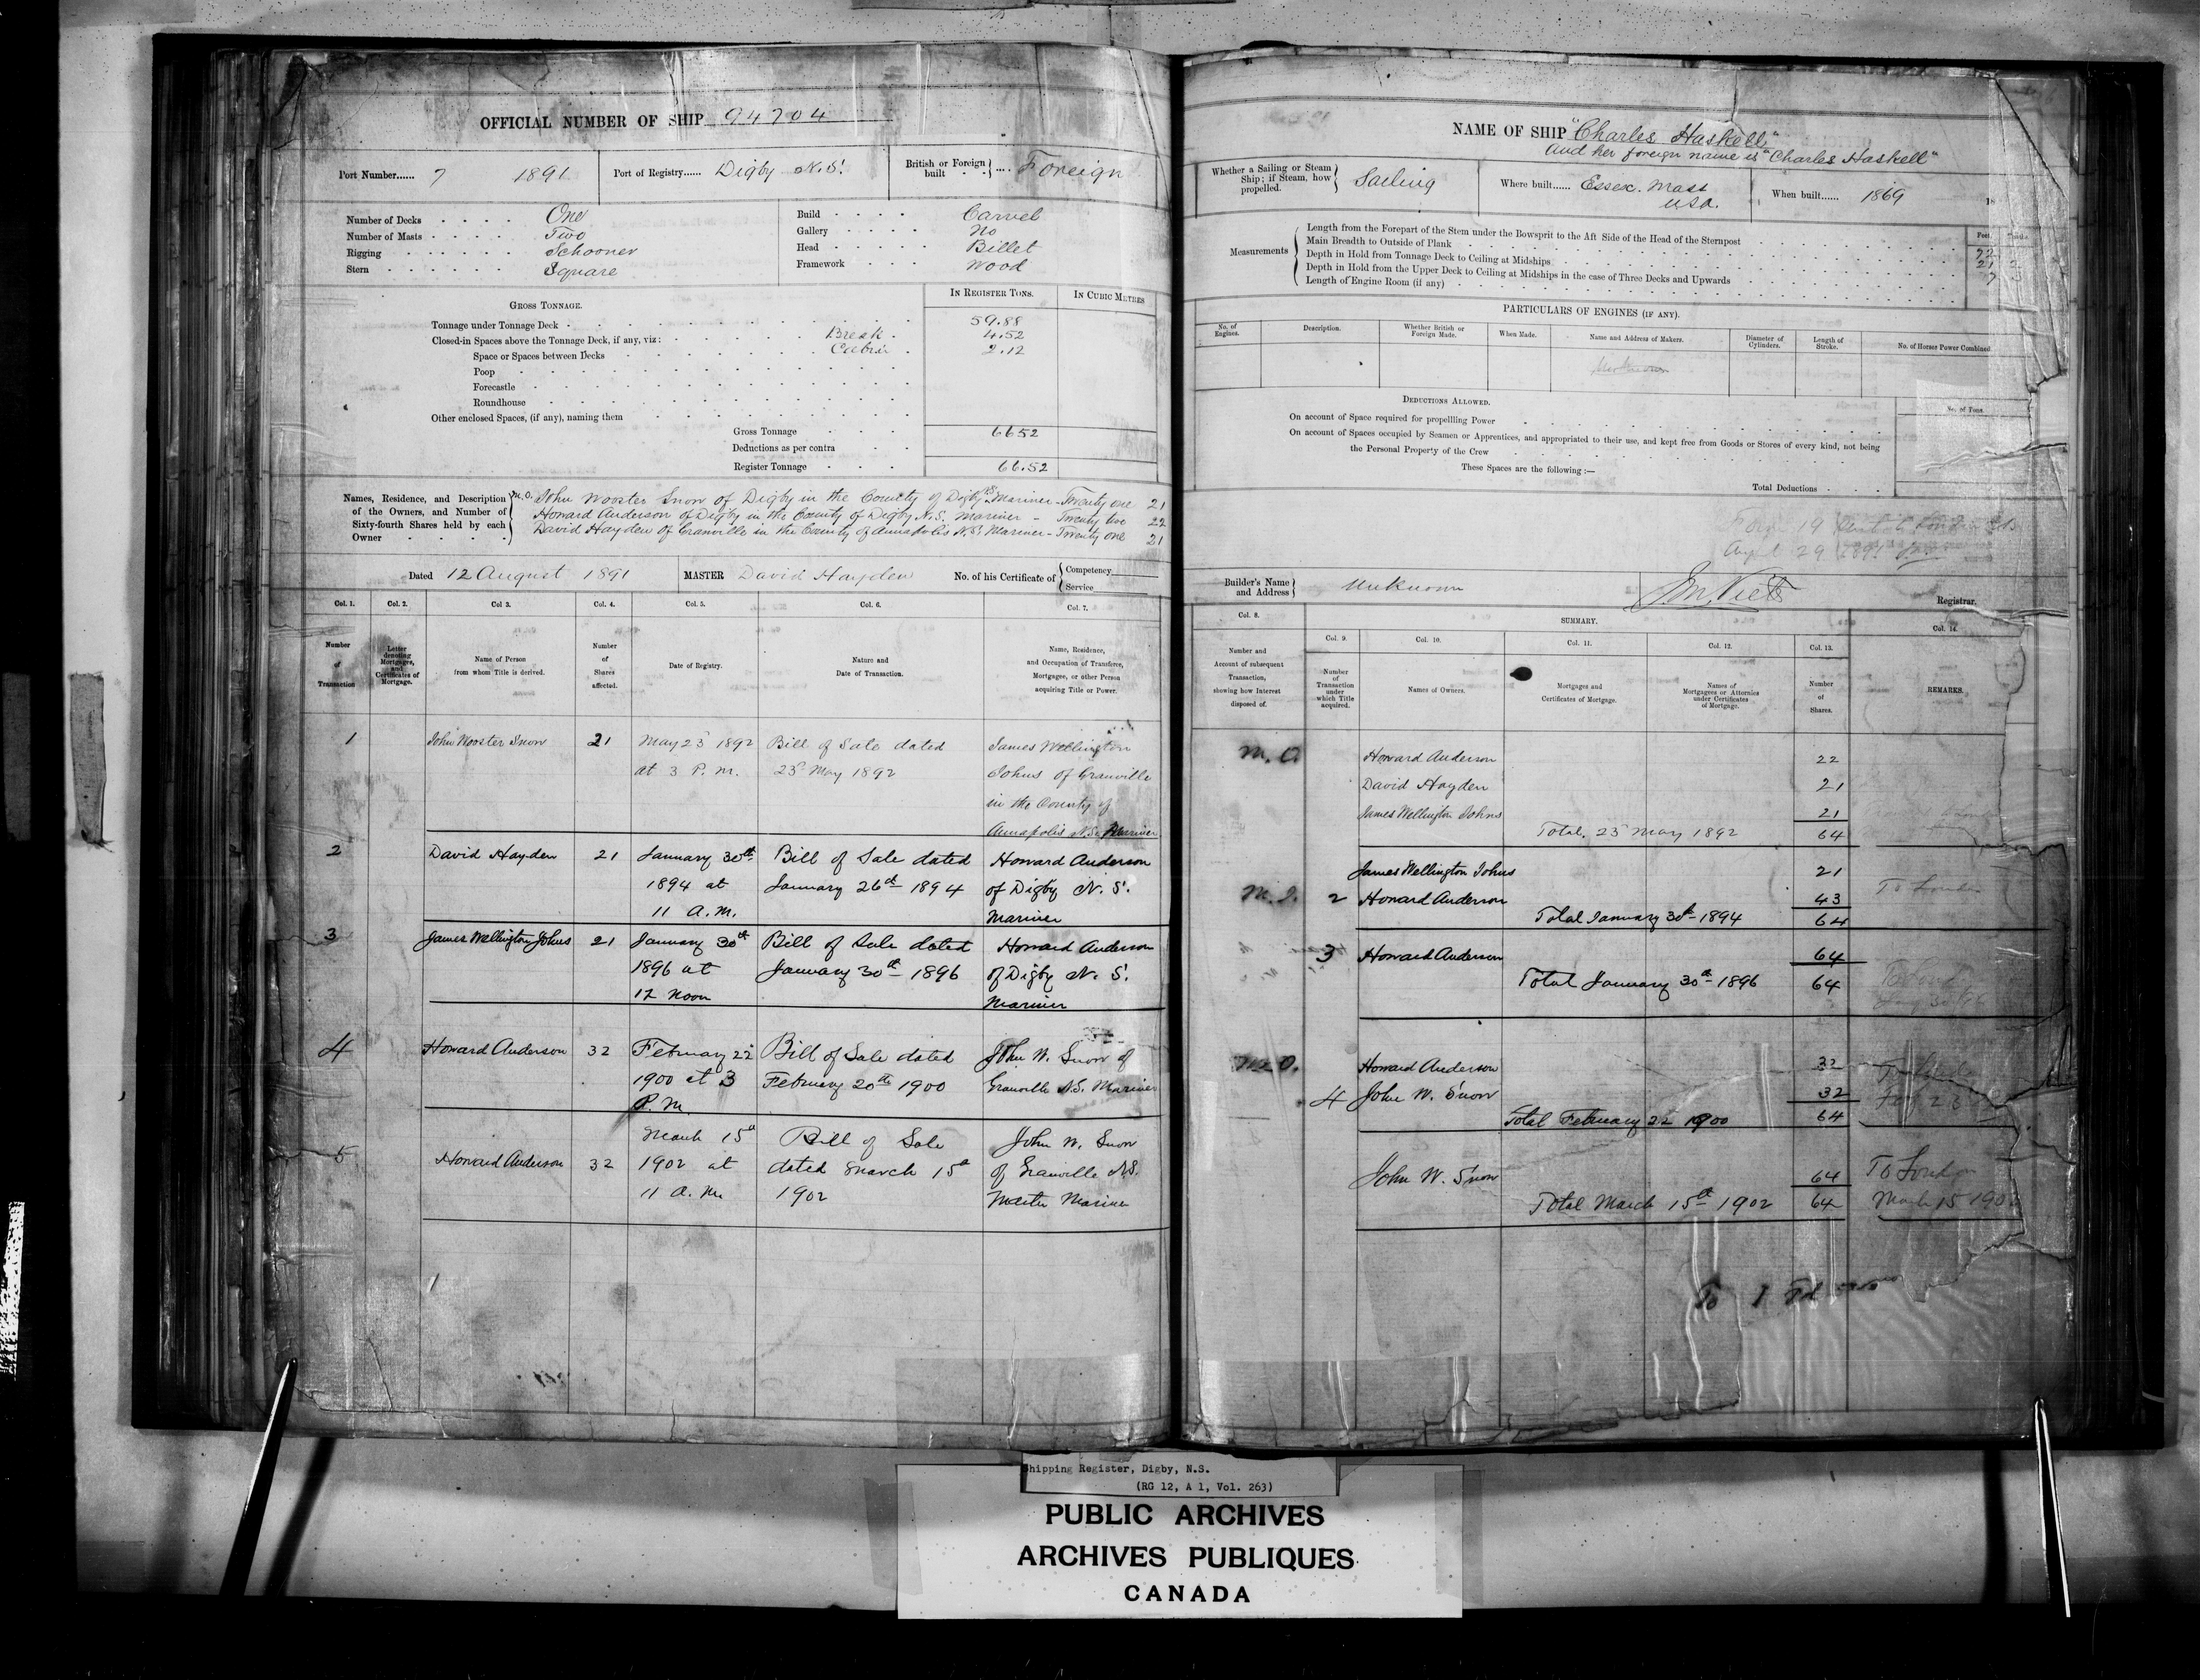 OFFICIAL NUMBER OF SHIP 94704
Port Number...... 7 1891
Port of Registry...... Digby N.S.
British or Foreign built .... Foreign
Number of Decks One
Number of Masts Two
Rigging Schooner
Stern Square
Build Carvel
Gallery No
Head Billet
Framework Wood
GROSS TONNAGE.
IN REGISTER TONS.
IN CUBIC METRES
Tonnage under Tonnage Deck 59.88
Closed-in Spaces above the Tonnage Deck, if any, viz: Break 4.52
Space or Spaces between Decks Cabin 2.12
Poop
Forecastle
Roundhouse
Other enclosed Spaces, (if any), naming them
Gross Tonnage 66.52
Deductions as per contra
Register Tonnage 66.52
Names, Residence, and Description of the Owners, and Number of Sixty-fourth Shares held by each Owner
M.O. John Wooster Snow of Digby in the County of Digby N.S. Mariner - Twenty one 21
Howard Anderson of Digby in the County of Digby N.S. Mariner - Twenty two 22
David Hayden of Granville in the County of Annapolis N.S. Mariner - Twenty one 21
Dated 12 August 1891
MASTER David Hayden
No. of his Certificate of Competency
Service
Col. 1. Col. 2. Col 3. Col. 4. Col. 5. Col. 6. Col. 7.
Number of Transaction
Letter denoting Mortgages, and Certificates of Mortgage.
Name of Person from whom Title is derived.
Number of Shares affected.
Date of Registry.
Nature and Date of Transaction.
Name, Residence, and Occupation of Transferee, Mortgagee, or other Person acquiring Title or Power.
1 John Wooster Snow 21 May 23 1892 Bill of Sale dated James Wellington
at 3 P.M. 23 May 1892 Johns of Granville
in the County of
Annapolis N.S. Mariner
2 David Hayden 21 January 30th Bill of Sale dated Howard Anderson
1894 at January 26th 1894 of Digby N.S.
11 A.M. Mariner
3 James Wellington Johns 21 January 30th Bill of Sale dated Howard Anderson
1896 at January 30th 1896 of Digby N.S.
12 Noon Mariner
4 Howard Anderson 32 February 22 Bill of Sale dated John W. Snow of
1900 at 3 February 20th 1900 Granville N.S. Mariner
P.M.
March 15th Bill of Sale John W. Snow
5 Howard Anderson 32 1902 at dated March 15th of Granville N.S.
11 a.m. 1902 Master Mariner
NAME OF SHIP "Charles Haskell"
and her foreign name is "Charles Haskell"
Whether a Sailing or Steam Ship; if Steam, how propelled. Sailing
Where built...... Essex. Mass
USA.
When built...... 1869 18
Measurements
Length from the Forepart of the Stem under the Bowsprit to the Aft Side of the Head of the Sternpost
Main Breadth to Outside of Plank
Depth in Hold from Tonnage Deck to Ceiling at Midships
Depth in Hold from the Upper Deck to Ceiling at Midships in the case of Three Decks and Upwards
Length of Engine Room (if any)
Feet.
21
7 3
PARTICULARS OF ENGINES (IF ANY).
No. of Engines.
Description.
Whether British or Foreign Made.
When Made.
Name and Address of Makers.
Diameter of Cylinders.
Length of Stroke.
No. of Horse Power Combined
DEDUCTIONS ALLOWED.
No. of Tons.
On account of Space required for propelling Power
On account of Spaces occupied by Seamen or Apprentices, and appropriated to their use, and kept free from Goods or Stores of every kind, not being
the Personal Property of the Crew
These Spaces are the following:—
Total Deductions
29 1891
Builder's Name and Address Unknown
Registrar.
Col. 8.
SUMMARY.
Col. 9. Col. 10. Col. 11. Col. 12. Col. 13. Col. 14.
Number and Account of subsequent Transaction, showing how Interest disposed of.
Number of Transaction under which Title acquired.
Names of Owners.
Mortgages and Certificates of Mortgage.
Names of Mortgagees or Attornies under Certificates of Mortgage.
Number of Shares.
REMARKS.
M.O. Howard Anderson 22
David Hayden 21
James Wellington Johns 21
Total, 23 May 1892 64
James Wellington Johns 21
2 Howard Anderson 43 To London
Total January 30th 1894 64
3 Howard Anderson 64
Total January 30th 1896 64
M.O. Howard Anderson 32
4 John W. Snow 32
Total February 22 1900 64
John W. Snow 64 To London
Total March 15th 1902 64 March 15
Shipping Register, Digby, N.S.
(RG 12, A 1, Vol. 263)
PUBLIC ARCHIVES
ARCHIVES PUBLIQUES
CANADA